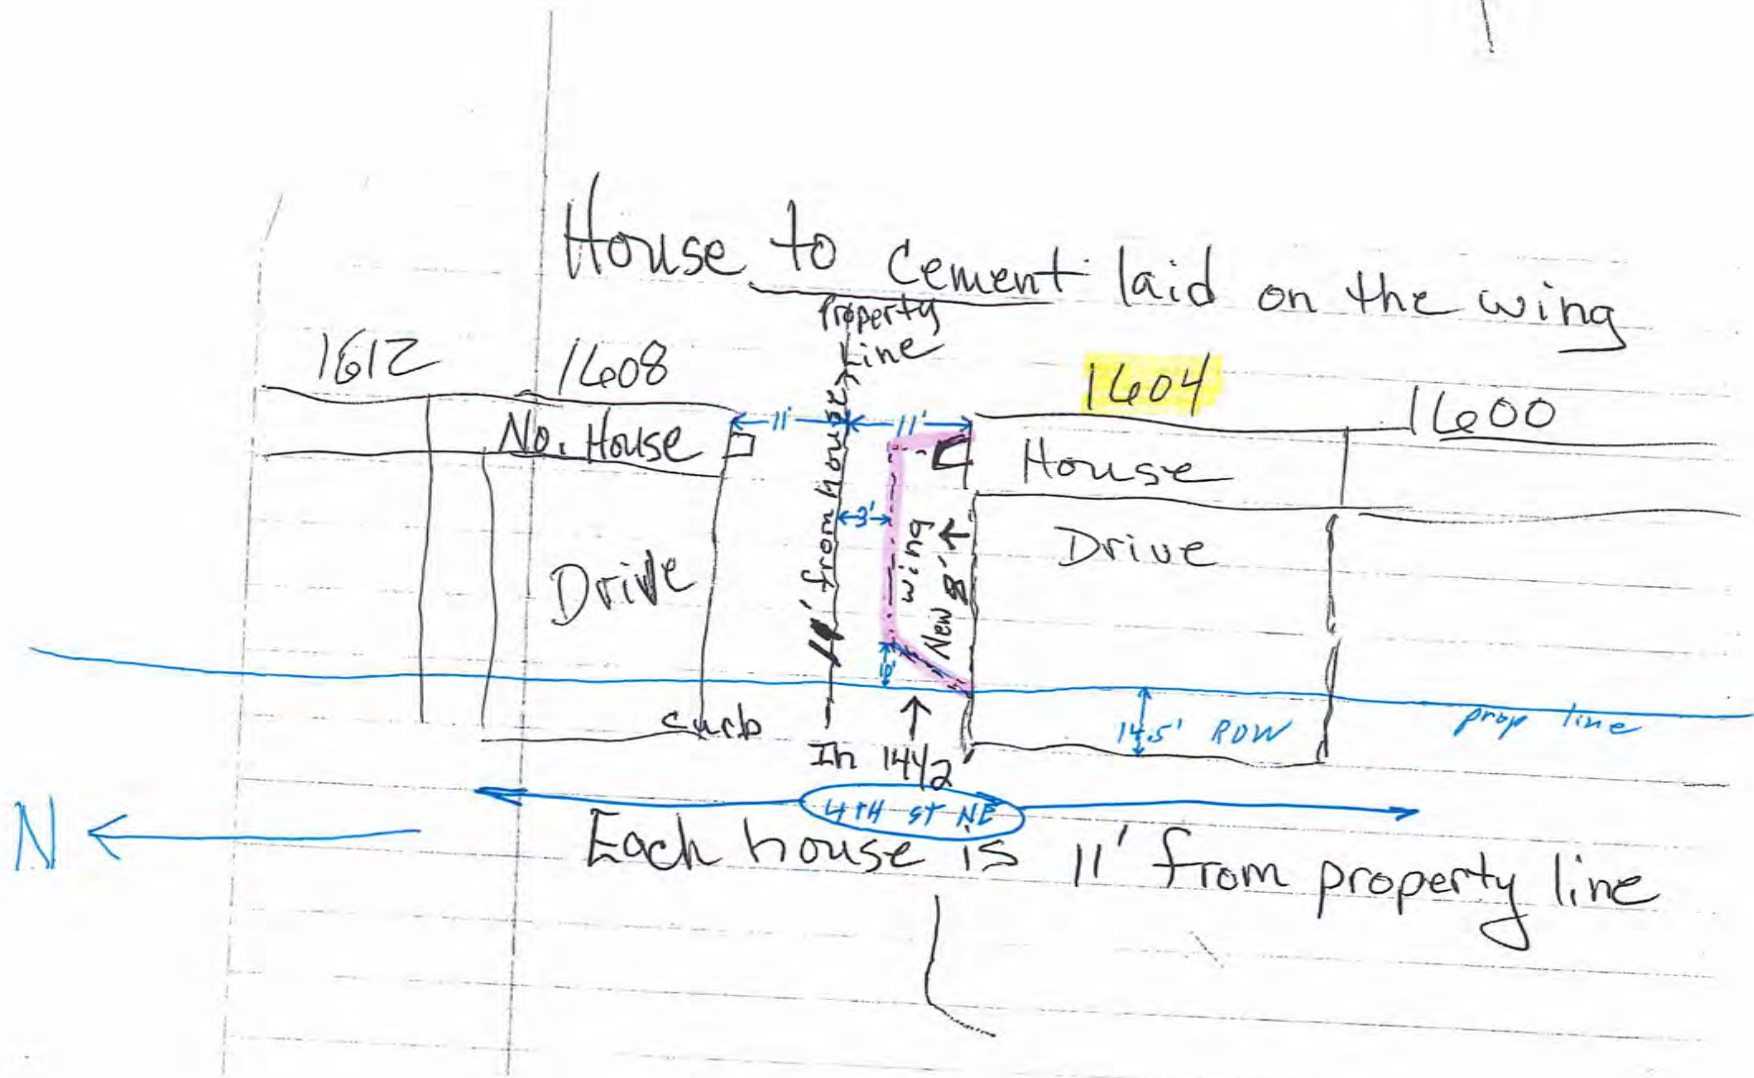 House to cement laid on the wing
Property
Line
1612
1608
1604
1600
11'
11'
No. House
House
11' from house
3'
wing
New 8'
Drive
Drive
10'
curb
In 14 1/2
14.5' ROW
prop line
4TH ST NE
N
Each house is 11' from property line